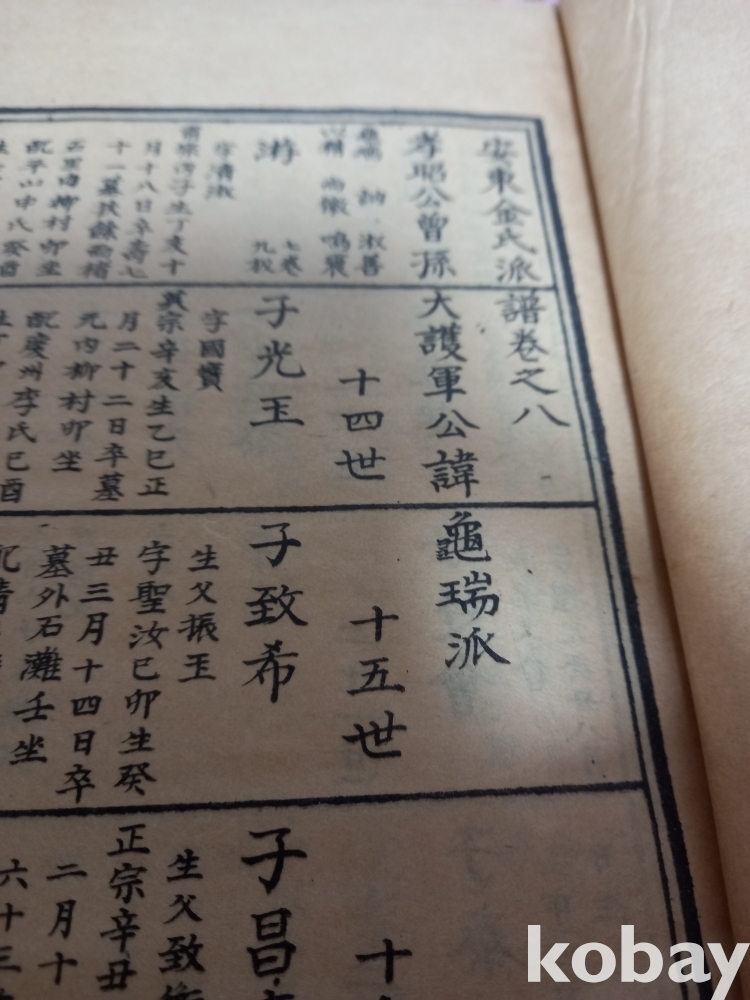 安東金氏派譜卷之八
孝昭公曾孫大護軍公諱龜瑞派
龜瑞 納 淑善
鳴寰
游
七卷
九板
字清淑
月十八日卒壽七
配平山申氏癸酉
十四世
子光玉
字國寶
英宗辛亥生乙巳正
月二十二日卒墓
元內柳村卯坐
配慶州李氏己酉
十五世
子致希
生父振玉
字聖汝己卯生癸
丑三月十四日卒
墓外石灘壬坐
配清
十
子昌
生父致
正宗辛丑
二月十
六十三
kobay